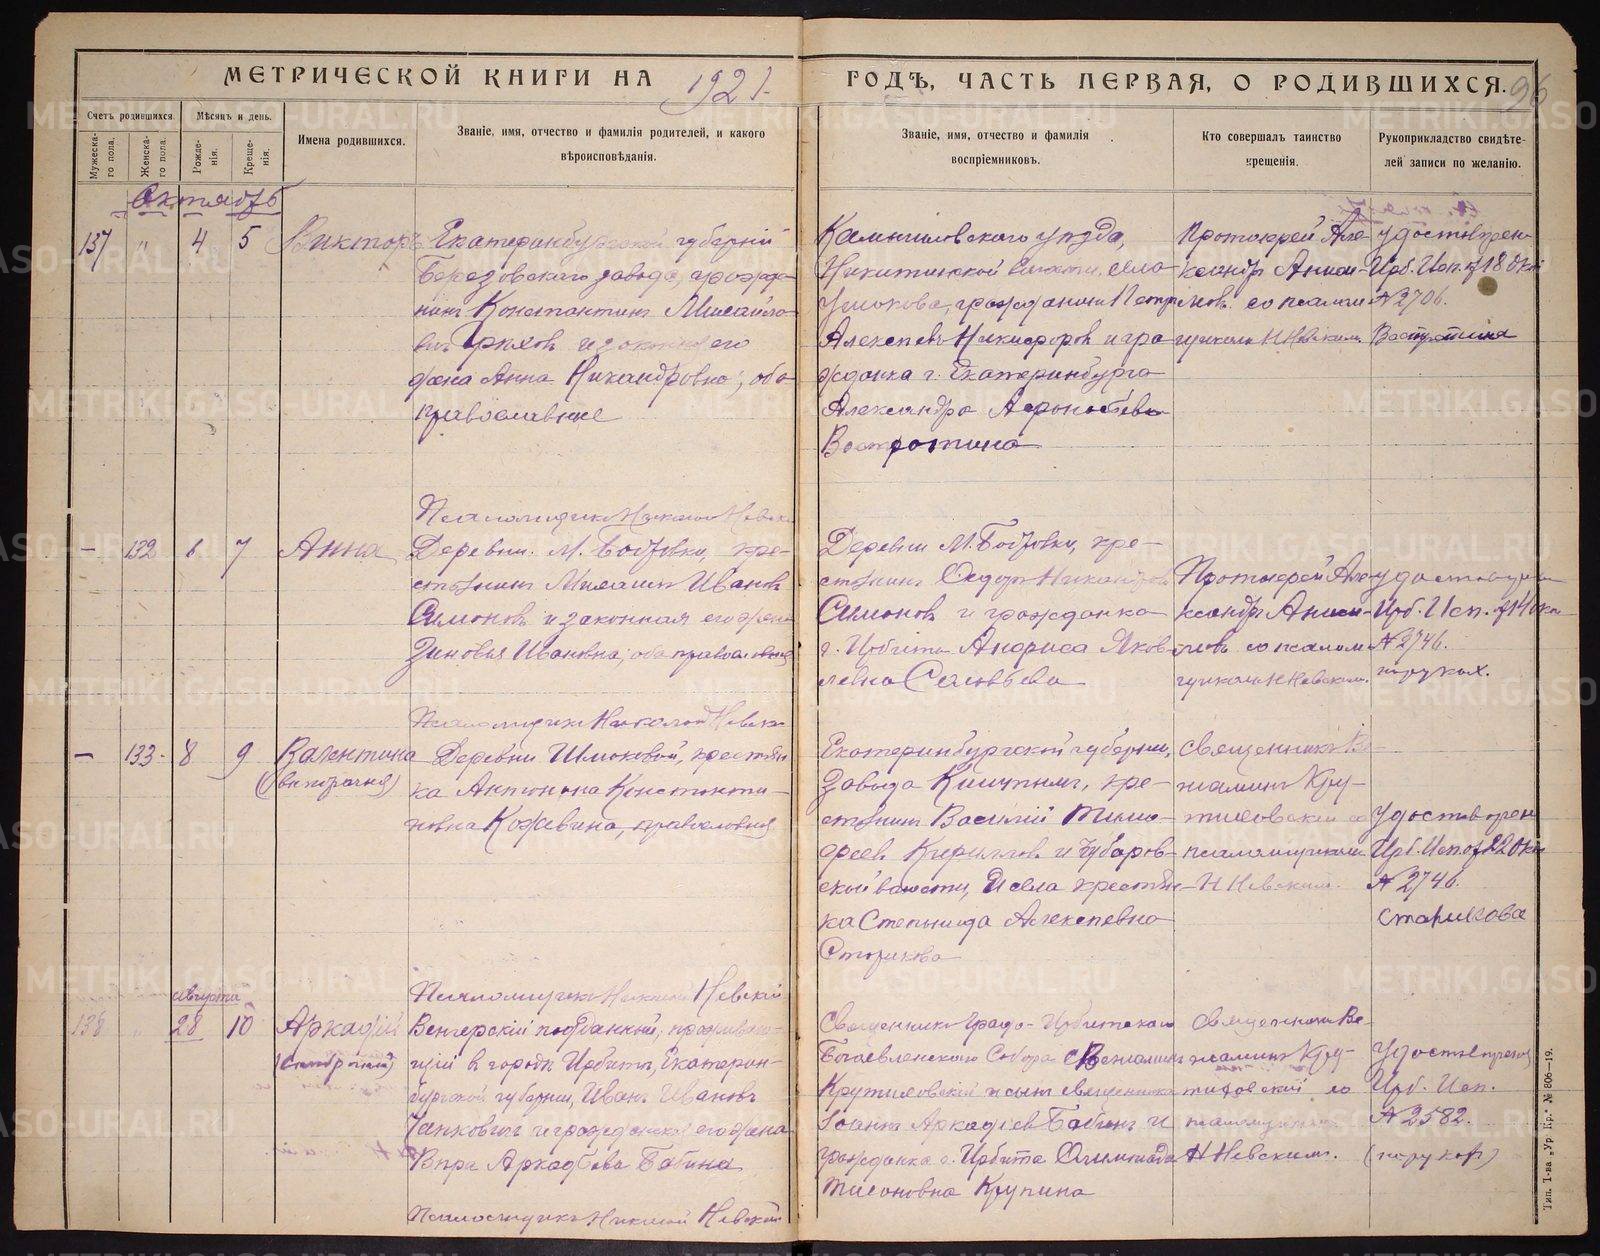 МЕТРИЧЕСКОЙ КНИГИ НА 1921
ГОДЪ, ЧАСТЬ ПЕРВАЯ, О РОДИВШИХСЯ.
96
Счетъ родившихся.
Мѣсяцъ и день.
Мужеска-
го пола.
Женска-
го пола.
Рожде-
нія.
Креще-
нія.
Имена родившихся.
Званіе, имя, отчество и фамилія родителей, и какого
вѣроисповѣданія.
Званіе, имя, отчество и фамилія
воспріемниковъ.
Кто совершалъ таинство
крещенія.
Рукоприкладство свидѣте-
лей записи по желанію.
Октябрь
137 " 4 5 Викторъ
Екатеринбургской губерніи
Березовскаго завода, гражда-
нинъ Константинъ Михайло-
вичъ и законная его
жена Анна Никандровна, оба
православные
Камышловскаго уѣзда,
Никитинской волости, села
гражданинъ Петръ
Алексѣевъ Никифоровъ и гра-
жданка г. Екатеринбурга
Александра
Востротина
Протоіерей Але-
ксандръ Аниси-
мовъ со псалом-
щикомъ Н Невскимъ.
Удостоверен
Ирб. Исп. 18 Окт
№ 2706.
Востротина
Псаломщикъ Николай Невскій
— 132 6 7 Анна
Деревни М. Бобровки, кре-
стьянинъ Иванов
Симоновъ и законная его жена
Зиновья Ивановна, оба православные
Деревни М. Бобровки, кре-
стьянинъ Федоръ
Симоновъ и гражданка
г. Ирбита Анфиса Яков-
левна Соловьева
Протоіерей Але-
ксандръ Аниси-
мовъ со псалом-
щикомъ Н Невскимъ.
Ирб. Исп. 14 Окт
№ 2746.
Псаломщикъ Николай Невскій
— 133 8 9 Валентина
Деревни крестьян-
ка Антонина Константи-
новна Кожевина, православная
Екатеринбургской губерніи,
завода Кыштымъ, кре-
стьянинъ Василій Тимо-
феевъ Кирилловъ и
волости, села крестьян-
ка Степанида Алексѣевна
Старикова
Священникъ Ве-
ніаминъ Кру-
тиховскій со
псаломщикомъ
Н Невскимъ.
Удостоверен
Ирб. Исп. от 22 Окт
№ 2746.
Старикова
Псаломщикъ Николай Невскій
августа
138 28 10 Аркадій
Венгерскій подданный, прожива-
щій в городѣ Ирбитѣ, Екатерин-
бургской губерніи, Иванъ Ивановъ
и гражданка его жена
Вѣра Аркадьева Бабина
Священникъ Градо-Ирбитскаго
Богоявленскаго Собора Веніаминъ
Крутиховскій и сынъ священника
Іоаннъ Аркадіевъ Бабинъ и
гражданка г. Ирбита Олимпіада
Тихоновна Крупина
Священникъ Ве-
ніаминъ Кру-
тиховскій со
псаломщикомъ
Н Невскимъ.
Ирб. Исп.
№ 2582.
Псаломщикъ Николай Невскій
Тип. Т-ва „Ур. Кр." № 606—19.
METRIKI.GASO-URAL.RU